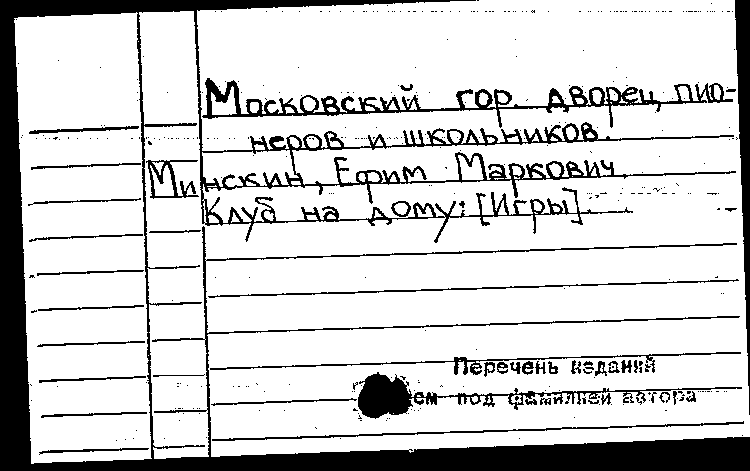 Московский гор. дворец пио-
неров и школьников.
Минскин, Ефим Маркович.
Клуб на дому: [Игры].
Перечень изданий
под фамилией автора